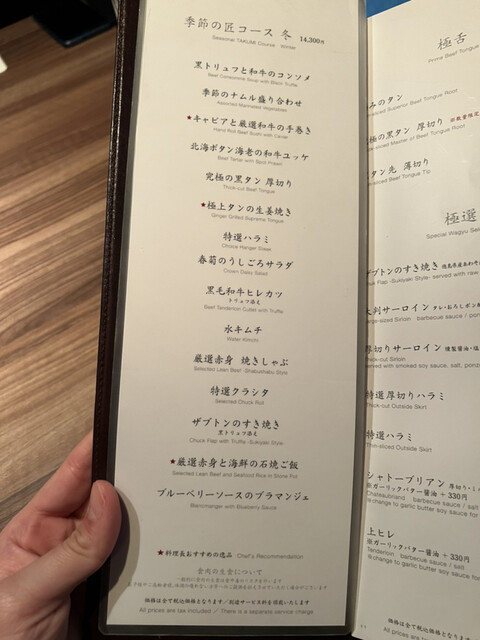 季節の匠コース 冬 14,300円
Seasonal TAKUMI Course Winter
黒トリュフと和牛のコンソメ
Beef Consommé Soup with Black Truffle
季節のナムル盛り合わせ
Assorted Marinated Vegetables
★キャビアと厳選和牛の手巻き
Hand Roll Beef Sushi with Caviar
北海ボタン海老の和牛ユッケ
Beef Tartar with Spot Prawn
究極の黒タン 厚切り
Thick-cut Beef Tongue
★極上タンの生姜焼き
Ginger Grilled Supreme Tongue
特選ハラミ
Choice Hanger Steak
春菊のうしごろサラダ
Crown Daisy Salad
黒毛和牛ヒレカツ
トリュフ添え
Beef Tenderloin Cutlet with Truffle
水キムチ
Water Kimchi
厳選赤身 焼きしゃぶ
Selected Lean Beef -Shabushabu Style-
特選クラシタ
Selected Chuck Roll
ザブトンのすき焼き
黒トリュフ添え
Chuck Flap with Truffle -Sukiyaki Style-
★厳選赤身と海鮮の石焼ご飯
Selected Lean Beef and Seafood Rice in Stone Pot
ブルーベリーソースのブラマンジェ
Blancmanger with Blueberry Sauce
★料理長おすすめの逸品 Chef's Recommendation
食肉の生食について
価格は全て税込価格となります／別途サービス料を頂戴いたします
All prices are tax included ／ There is a separate service charge
極舌
Prime Beef Tongue
みのタン
Superior Beef Tongue Root
究極の黒タン 厚切り
of Superior Beef Tongue Root
タン先 薄切り
Beef Tongue Tip
極選
Special Wagyu
ザブトンのすき焼き
Chuck Flap -Sukiyaki Style- served with raw
大判サーロイン
Sirloin barbecue sauce /
厚切りサーロイン
Thick-cut Sirloin
served with smoked soy sauce, salt,
特選厚切りハラミ
Thick-cut Outside Skirt
特選ハラミ
Thin-sliced Outside Skirt
シャトーブリアン
※ガーリックバター醤油 + 330円
Chateaubriand barbecue sauce / salt
※change to garlic butter soy sauce for
上ヒレ
※ガーリックバター醤油 + 330円
Tenderloin barbecue sauce / salt
※change to garlic butter soy sauce for